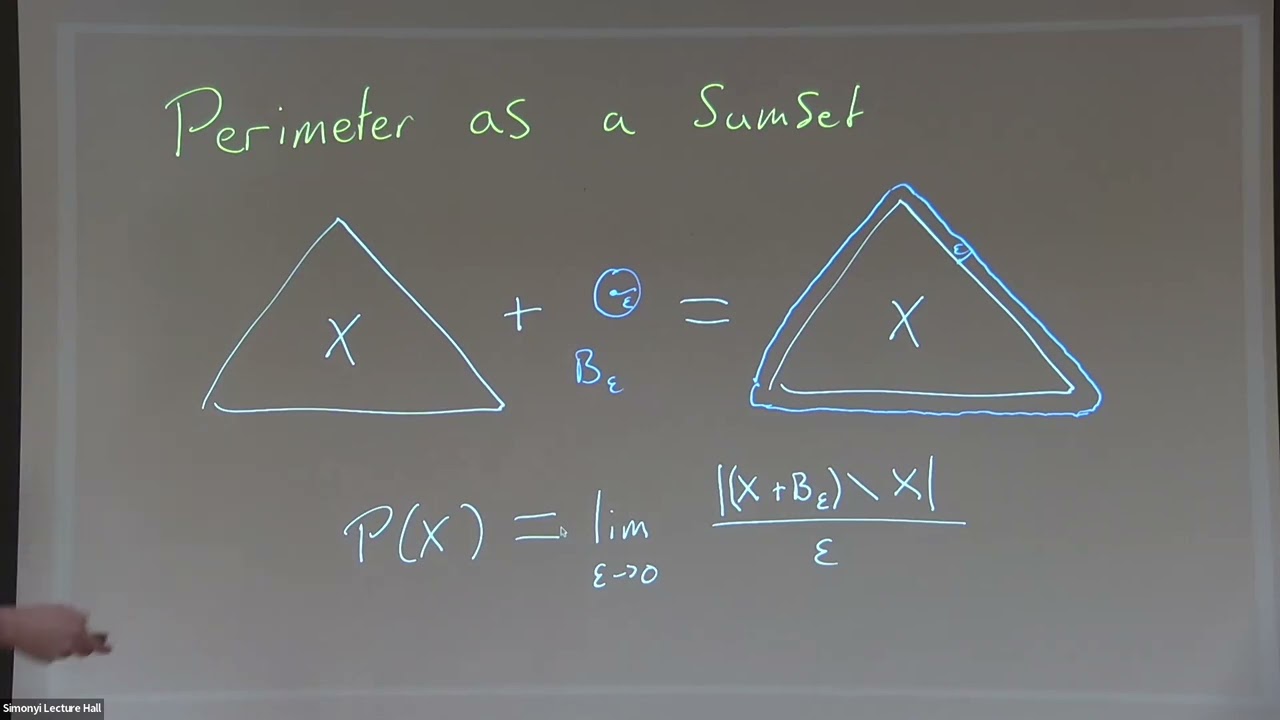 Perimeter as a Sumset
X + ε = X ε
B_ε
P(X) = lim_{ε→0} |(X+B_ε)∖X| / ε
Simonyi Lecture Hall